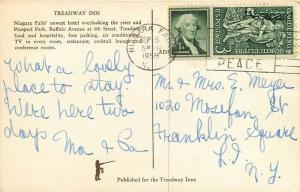 TREADWAY INN
Niagara Falls' newest hotel overlooking the river and
Prospect Park, Buffalo Avenue at 4th Street. Treadway
food and hospitality, free parking, air conditioning,
TV in every room, restaurant, cocktail lounge,
conference rooms.
What a lovely
place to stay.
Were here two
days
Ma & Pa
SEP 5
1958
PEACE
Mr. & Mrs. E. Meyer
1020
Franklin Square
L.I.
N.Y.
Published for the Treadway Inns